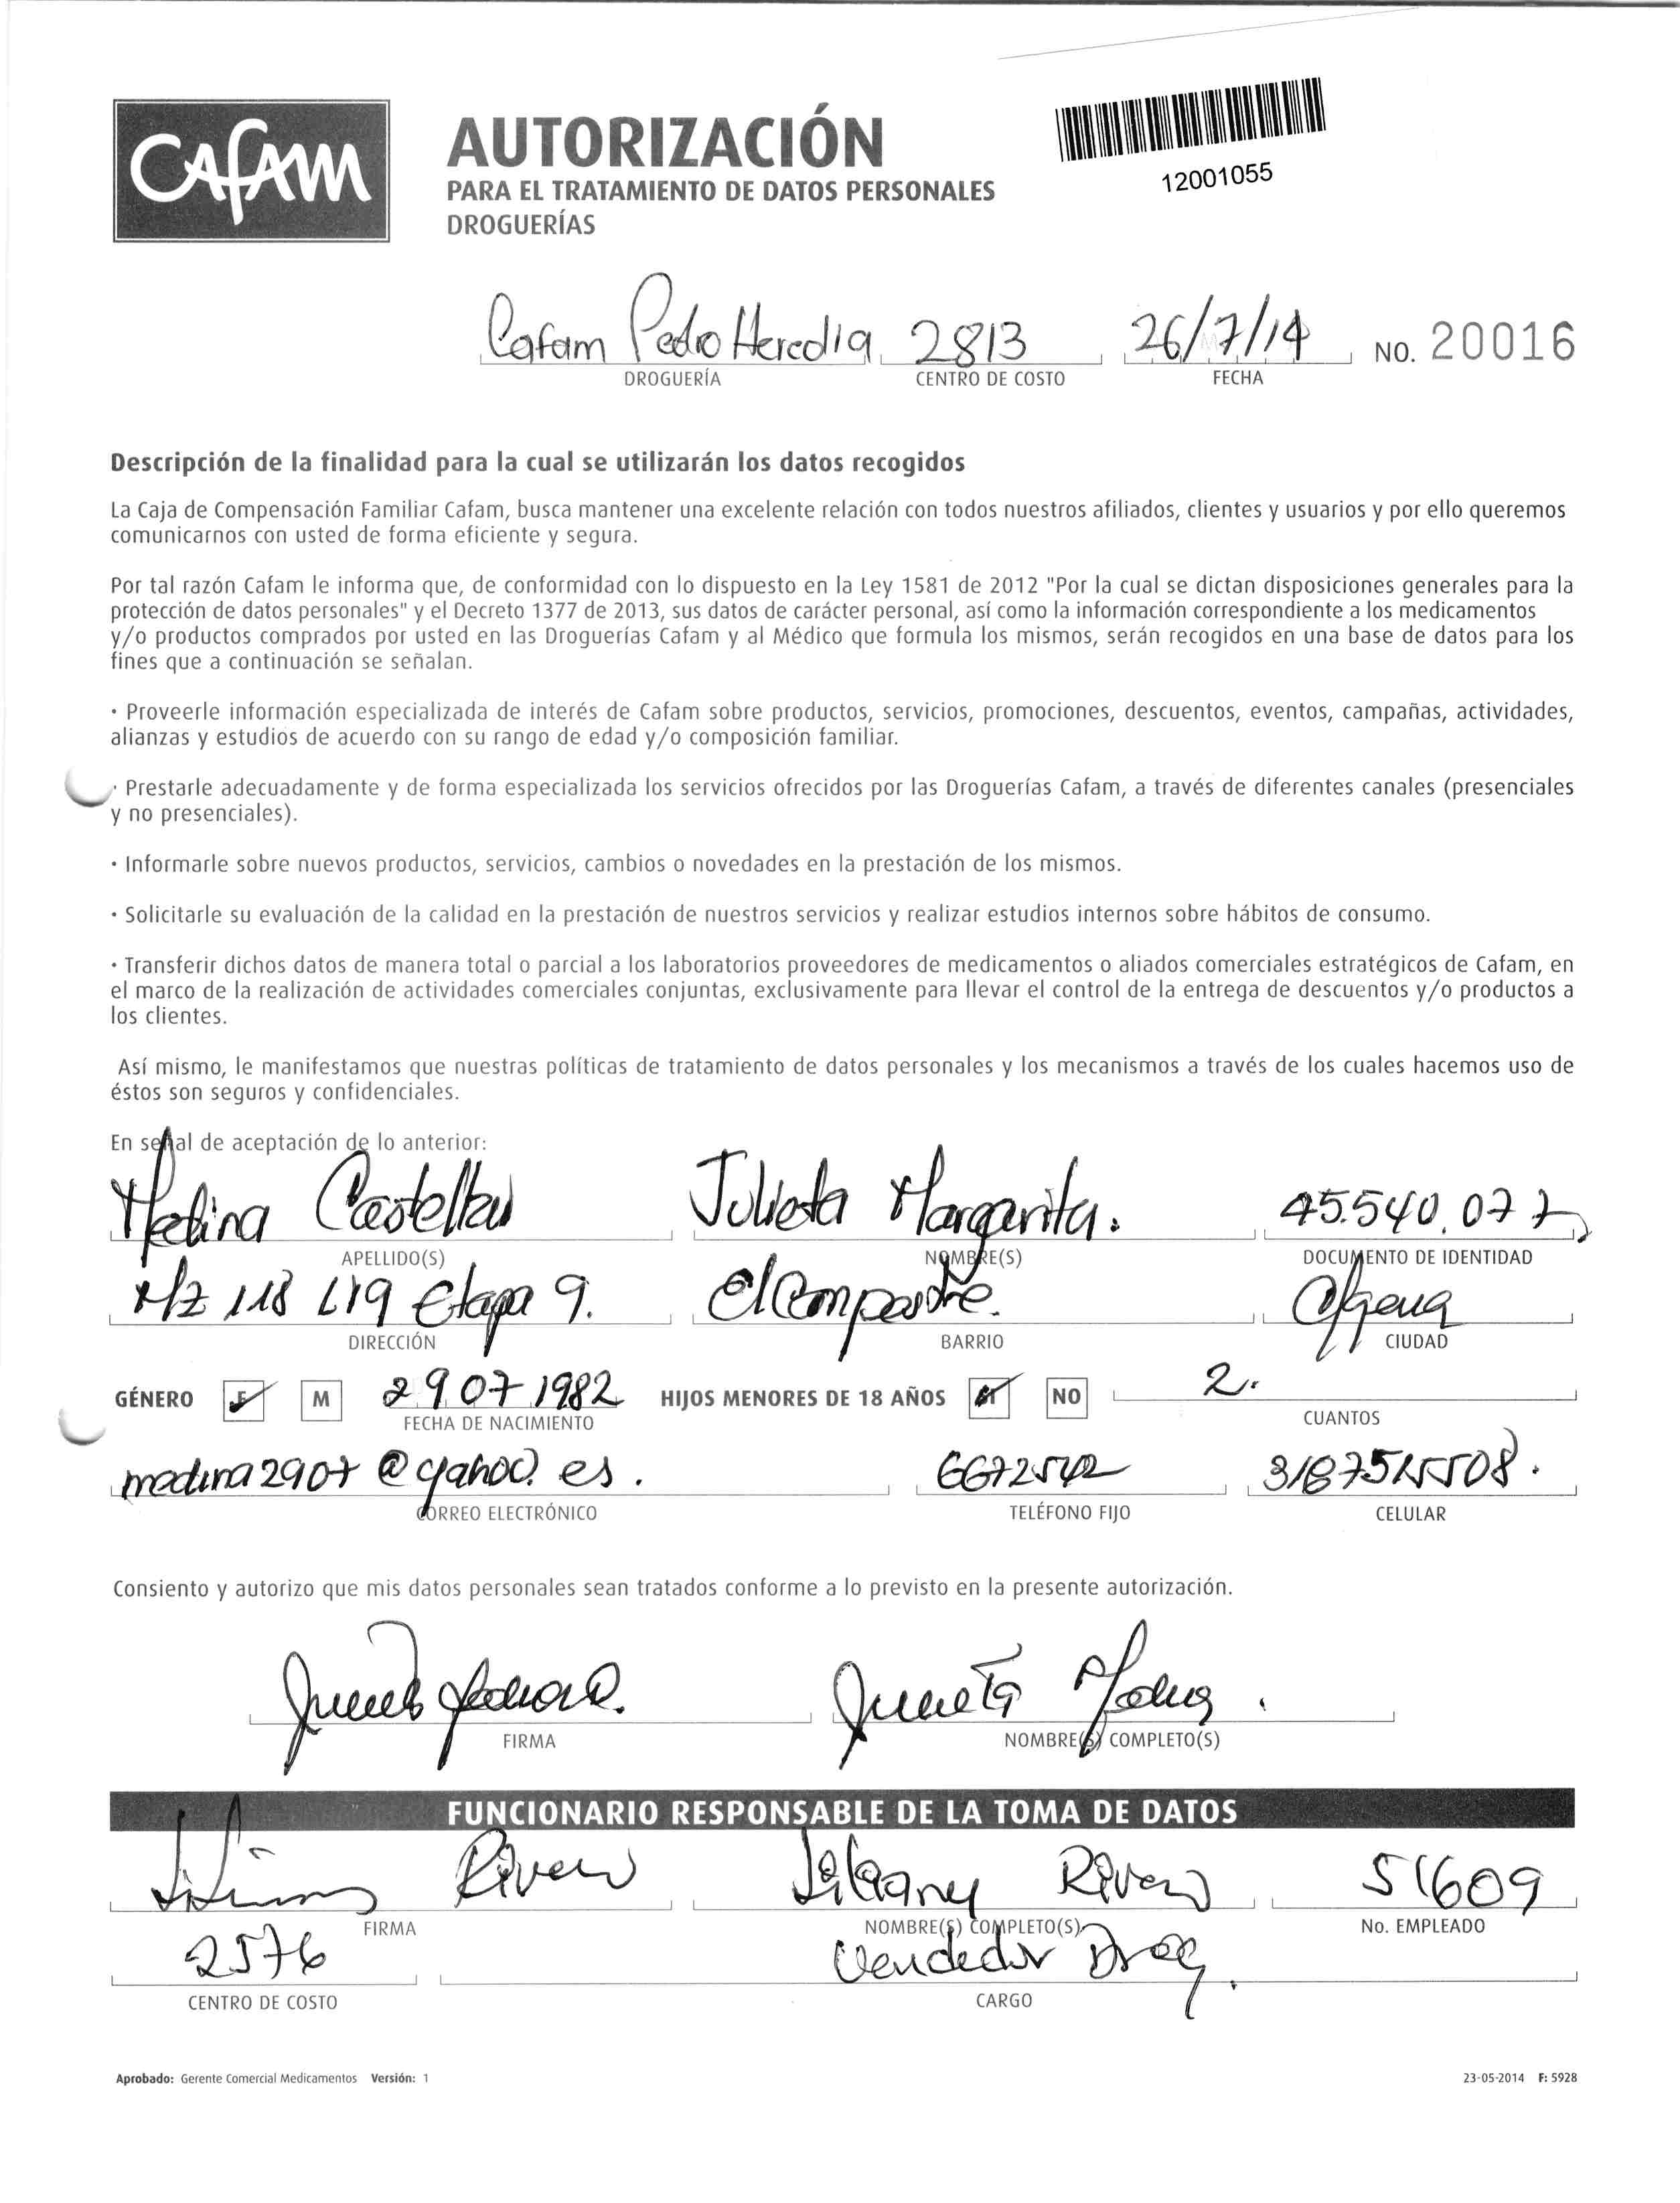 CAFAM
AUTORIZACIÓN
PARA EL TRATAMIENTO DE DATOS PERSONALES
DROGUERÍAS
12001055
Cafam Pedro Heredia 2813 26/7/14 NO. 20016
DROGUERÍA CENTRO DE COSTO FECHA
Descripción de la finalidad para la cual se utilizarán los datos recogidos
La Caja de Compensación Familiar Cafam, busca mantener una excelente relación con todos nuestros afiliados, clientes y usuarios y por ello queremos
comunicarnos con usted de forma eficiente y segura.
Por tal razón Cafam le informa que, de conformidad con lo dispuesto en la Ley 1581 de 2012 "Por la cual se dictan disposiciones generales para la
protección de datos personales" y el Decreto 1377 de 2013, sus datos de carácter personal, así como la información correspondiente a los medicamentos
y/o productos comprados por usted en las Droguerías Cafam y al Médico que formula los mismos, serán recogidos en una base de datos para los
fines que a continuación se señalan.
· Proveerle información especializada de interés de Cafam sobre productos, servicios, promociones, descuentos, eventos, campañas, actividades,
alianzas y estudios de acuerdo con su rango de edad y/o composición familiar.
· Prestarle adecuadamente y de forma especializada los servicios ofrecidos por las Droguerías Cafam, a través de diferentes canales (presenciales
y no presenciales).
· Informarle sobre nuevos productos, servicios, cambios o novedades en la prestación de los mismos.
· Solicitarle su evaluación de la calidad en la prestación de nuestros servicios y realizar estudios internos sobre hábitos de consumo.
· Transferir dichos datos de manera total o parcial a los laboratorios proveedores de medicamentos o aliados comerciales estratégicos de Cafam, en
el marco de la realización de actividades comerciales conjuntas, exclusivamente para llevar el control de la entrega de descuentos y/o productos a
los clientes.
Así mismo, le manifestamos que nuestras políticas de tratamiento de datos personales y los mecanismos a través de los cuales hacemos uso de
éstos son seguros y confidenciales.
En señal de aceptación de lo anterior:
Medina Castellar Julieta Margarita. 45.540.077
APELLIDO(S) NOMBRE(S) DOCUMENTO DE IDENTIDAD
Mz 118 L19 Etapa 9. El Campestre. C/gena
DIRECCIÓN BARRIO CIUDAD
GÉNERO F M 29.07.1982 HIJOS MENORES DE 18 AÑOS SI NO 2.
FECHA DE NACIMIENTO CUANTOS
medina2907@yahoo.es. 6672542 3187515508.
CORREO ELECTRÓNICO TELÉFONO FIJO CELULAR
Consiento y autorizo que mis datos personales sean tratados conforme a lo previsto en la presente autorización.
Julieta Medina.
FIRMA NOMBRE(S) COMPLETO(S)
FUNCIONARIO RESPONSABLE DE LA TOMA DE DATOS
Rivero Rivero 51609
FIRMA NOMBRE(S) COMPLETO(S) No. EMPLEADO
2576 Vendedor Drog.
CENTRO DE COSTO CARGO
Aprobado: Gerente Comercial Medicamentos Versión: 1 23-05-2014 F: 5928